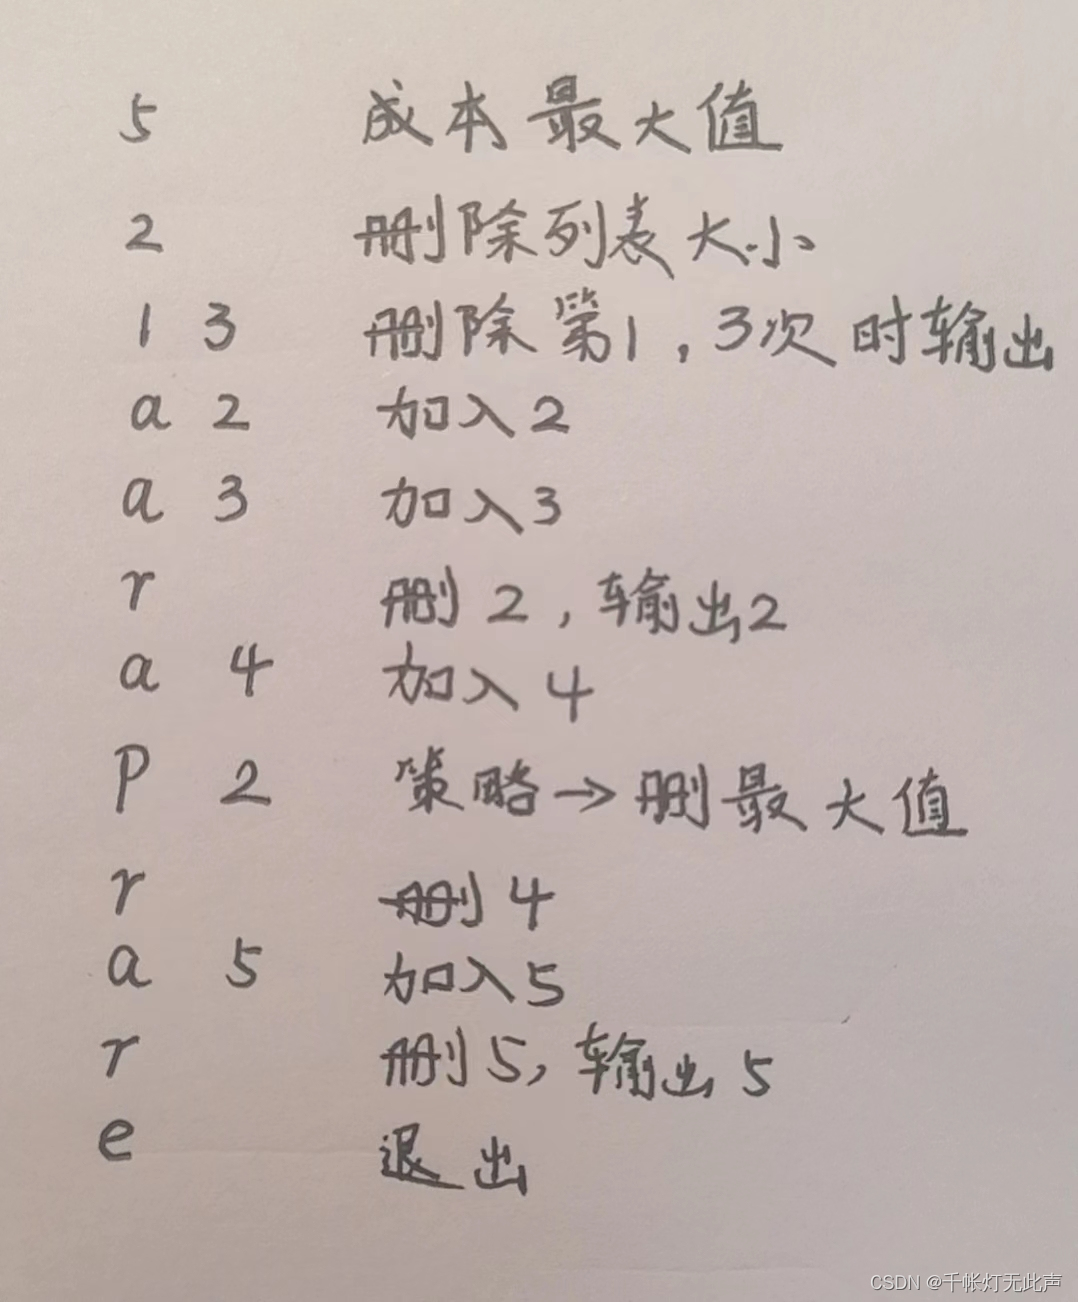 5 成本最大值
2 删除列表大小
1 3 删除第1,3次时输出
a 2 加入2
a 3 加入3
r 删2,输出2
a 4 加入4
P 2 策略→删最大值
r 删4
a 5 加入5
r 删5,输出5
e 退出
CSDN @千帐灯无此声